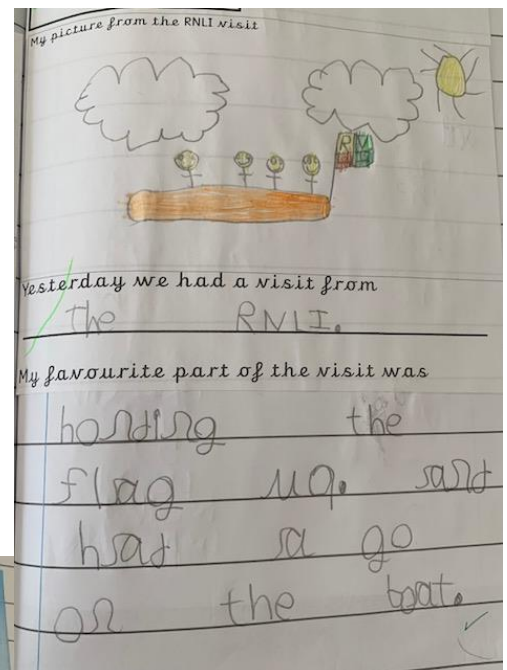 My picture from the RNLI visit
R
Yesterday we had a visit from
the RNLI.
My favourite part of the visit was
honding the
flag up. and
had a go
on the boat.